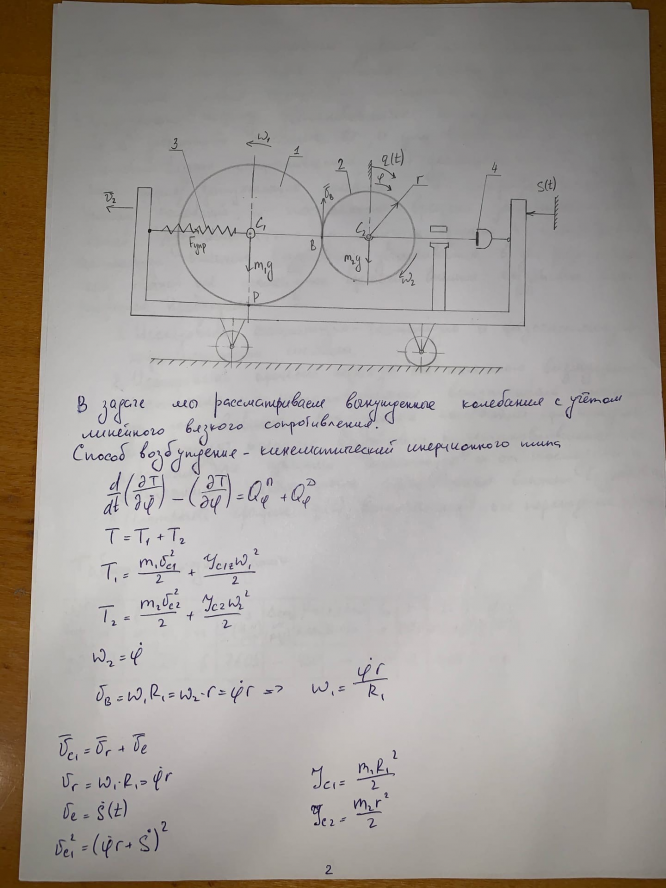 3
ω₁
1
2
q(t)
φ
r
4
S(t)
v̄₂
v̄_B
C₁
C₂
B
F упр
m₁g
m₂g
ω₂
P
В задаче мы рассматриваем вынужденные колебания с учётом
линейного вязкого сопротивления.
Способ возбуждения - кинематический инерционного типа
d/dt (∂T/∂φ̇) − (∂T/∂φ) = Q_φ^П + Q_φ^D
T = T₁ + T₂
T₁ = m₁v_{c1}²/2 + J_{c1z}ω₁²/2
T₂ = m₂v_{c2}²/2 + J_{c2}ω₂²/2
ω₂ = φ̇
v_B = ω₁R₁ = ω₂·r = φ̇r => ω₁ = φ̇r/R₁
v̄_{c1} = v̄_r + v̄_e
v_r = ω₁·R₁ = φ̇r J_{c1} = m₁R₁²/2
v_e = Ṡ(t) J_{c2} = m₂r²/2
v_{c1}² = (φ̇r + Ṡ)²
2